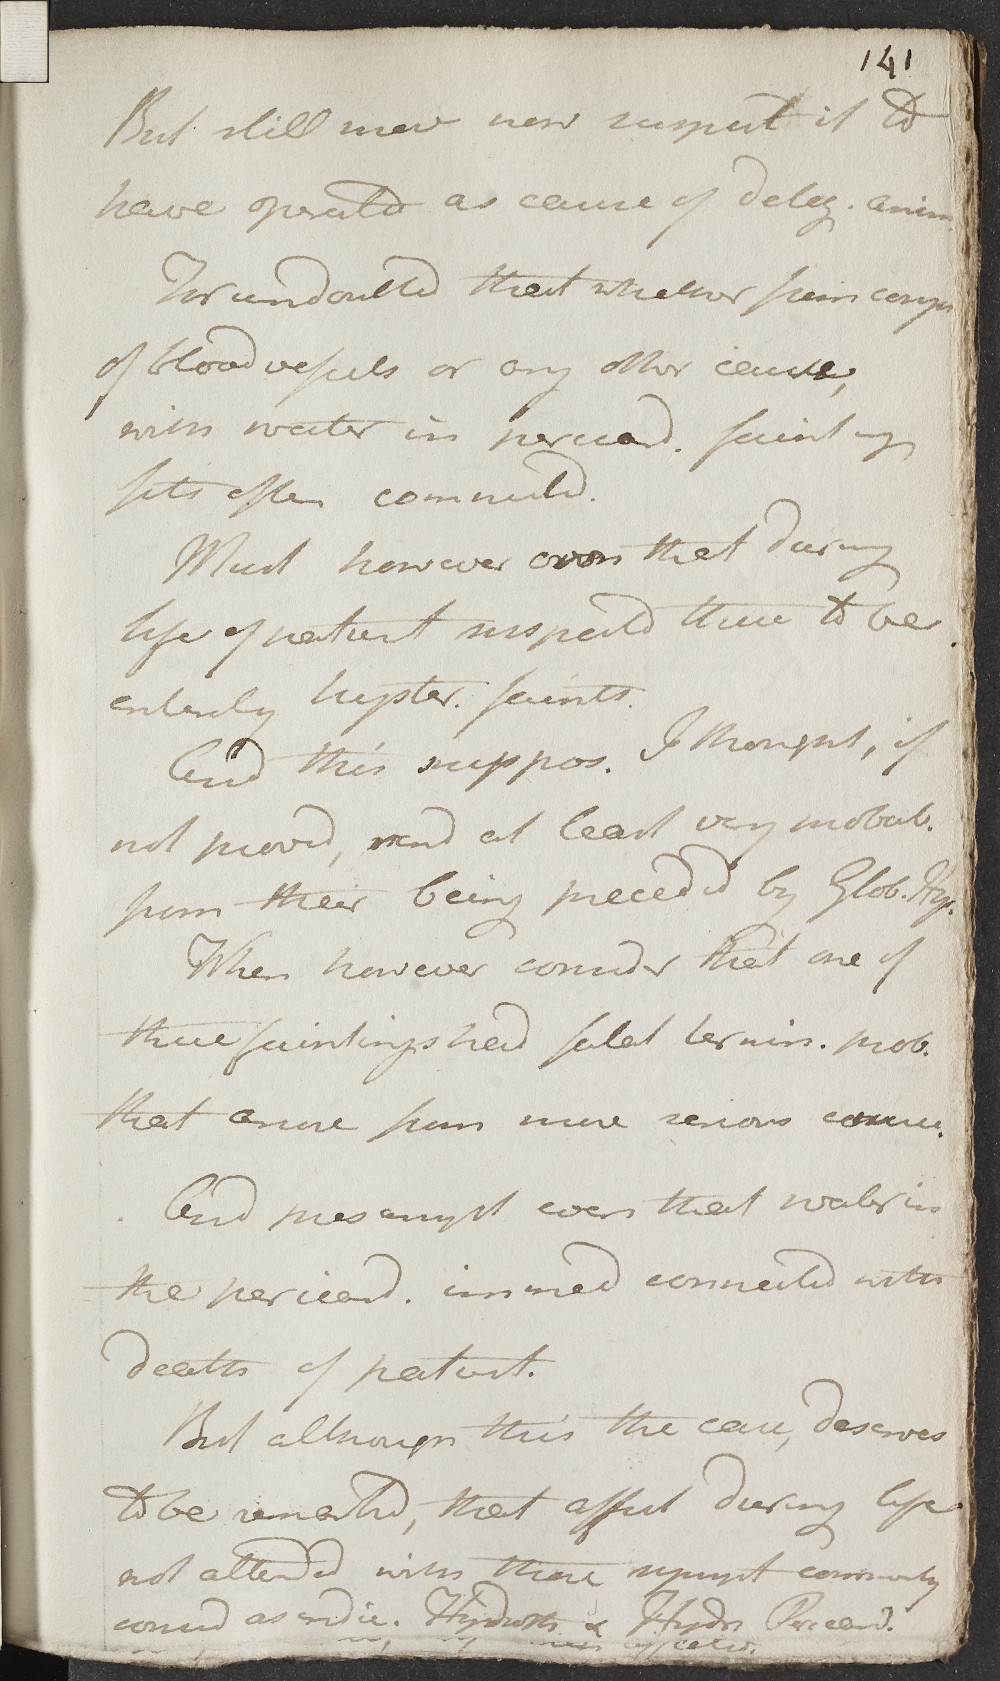 141
But still now suspect it to
have operated as cause of deleg. anim.
For undoubted that whether from comp
of blood vessels or any other cause,
with water in pericard. fainting
fits often connected.
Must however own that during
life of patient suspected these to be
entirely hyster. faints.
And this suppos. I thought, if
not proved, rend at least very probab.
from their being preceded by Glob. Hys.
When however consider that one of
these faintings had fatal termin. prob.
that arose from more serious cause.
And presumpt even that water in
the pericard. immed connected with
death of patient.
But although this the case, deserves
to be remarked, that affect during life
not attended with those sympt commonly
consid as indic. Hydroth & Hydr Pericard.